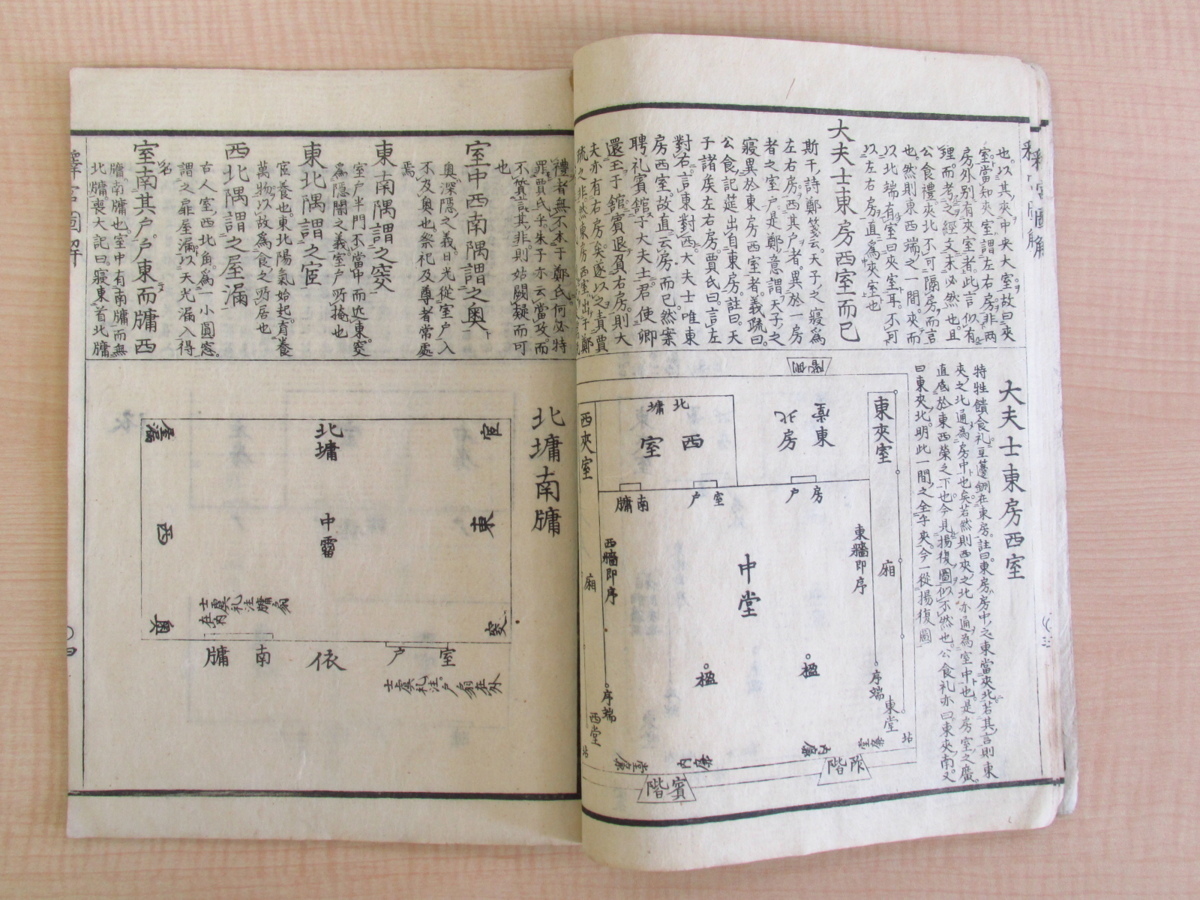 也以其夾中央大室故曰夾
室當知夾室謂左右房非兩
房外別有夾室者此言似有
理而考之經文未必然也且
公食禮夾北不可隔房而言
也然則東西端之一間夾而
以北端有室曰夾室耳不可
以左右房直為夾室也
大夫士東房西室而已
斯干詩鄭箋云天子之寢為
左右房西其戶者異於一房
者之室戶是鄭意謂天子之
寢異於東房西室者義疏曰
公食記筵出自東房註曰天
子諸矦左右房賈氏曰言左
對右言東對西大夫士唯東
房西室故直云房而已然案
聘礼賓館于大夫士君使卿
還玉于館賓退負右房則大
夫亦有右房矣遂以之責賈
疏之非然東房西室出于鄭
大夫士東房西室
特牲饋食礼豆籩鉶在東房註曰東房房中之東當夾北若其言則東
夾之北通為房中也矣若然則西夾之北亦通為室中也是房室之廣
直底於東西榮之下也今見揚復圖似不然也公食礼亦曰東夾南又
曰東夾北明此一間之全乎夾今一從揚復圖
東夾室
東房
北
北墉
西室
西夾室
房戶
室戶
南牖
東牆即序
西牆即序
廂
廂
中堂
楹
楹
序端
東堂
序端
西堂
坫
坫
內廉
內廉
阼階
賓階
禮者無不本于鄭氏何必特
罪賈氏乎朱子亦云當政而
不質言其非則姑闕疑而可
也
室中西南隅謂之奧
奧深隱之義日光從室戶入
不及奧也祭祀及尊者常處
焉
東南隅謂之窔
室戶半門不當中而近東窔
為隱闇之義室戶所掩也
東北隅謂之宧
宧養也東北陽氣始起育養
萬物以故為食之所居也
西北隅謂之屋漏
古人室西北角為一小圓窓
謂之扉屋漏以天光漏入得
名
室南其戶戶東而牖西
牖南牖也室中有南牖而無
北牖喪大記曰寢東首北牖
北墉南牖
宧
北墉
屋漏
東
中霤
西
窔
奧
士虞礼注牖扇在內
室戶
依
南牖
士虞礼注戶扇在外
釋宮圖解
〇四